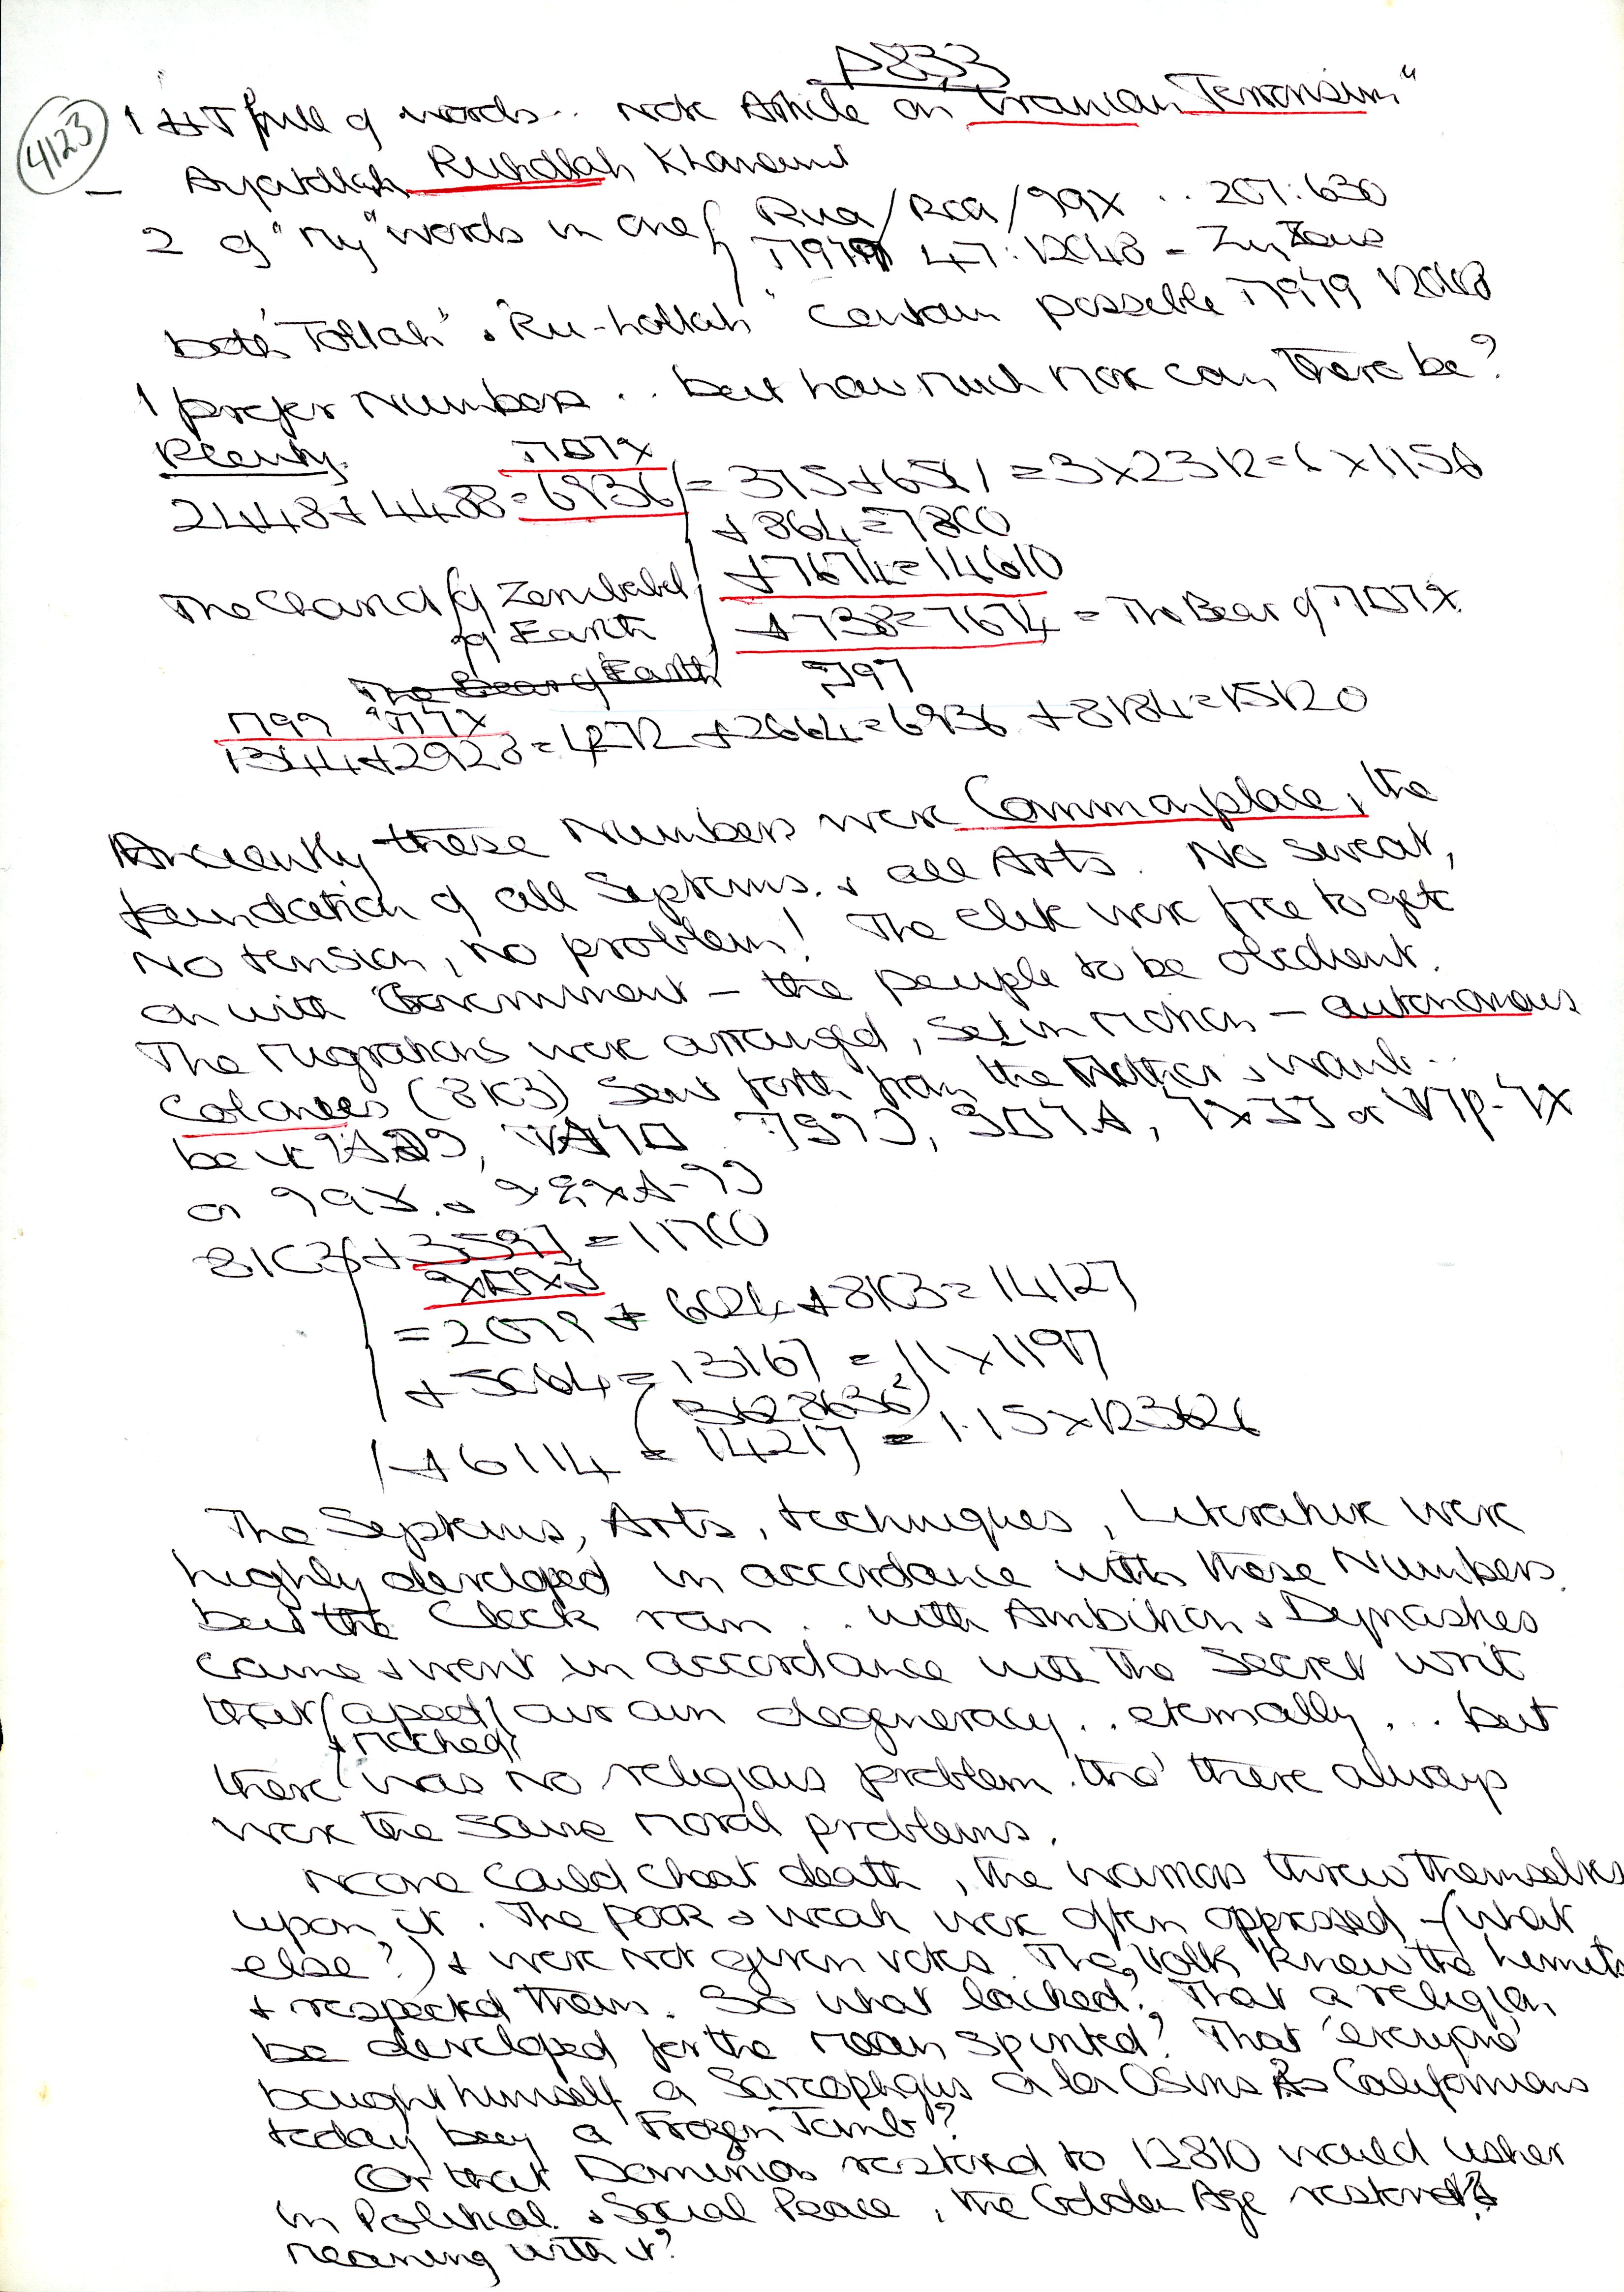 P833
4123
1 HT full of words.. Note Article on "Iranian Terrorism"
- Ayatollah Ruhollah
2 of "my" words in one / Rua/Rca/99X .. 207:630
47:12048 -
both 'Tollah' & 'Ru-hollah' contain possible
I prefer Numbers .. but how much more can there be?
Plenty.
2448+4488=6936 = 375+6561 = 3x2312=6x1156
+864=7800
+7674=14610
The Chariot of Zerubabel
of Earth +738=7674 = The Bear of
The Bear of Earth
1344+2928=4272+2664=6936+8184=15120
Anciently these Numbers were Commonplace, the
foundation of all Systems. & all Arts. No sweat,
no tension, no problem! The elite were free to get
on with Government - the people to be obedient.
The migrations were arranged, set in motion - autonomous
Colonies (8103) sent forth from the Mother &
be it
or 99X. &
8103 + 3597 = 11700
= 2079 + 6024 + 8103 = 14127
+ 5064 = 13167 = 11x1197
+ 6114 = 14217 = 1.15x12362
The Systems, Arts, techniques, Literature were
highly developed in accordance with these Numbers.
but the Clock ran .. with Ambition & Dynasties
came & went in accordance with the Secret writ
that (aped / our own degeneracy .. eternally ... but
& mocked)
there was no religious problem. tho' there always
were the same moral problems.
None could cheat death, the warriors threw themselves
upon it. The poor & weak were often oppressed - (what
else?) & were not given votes. The 'Volk' knew the hermits
& respected them. So what lacked? That a religion
be developed for the mean spirited? That 'everyone'
bought himself a Sarcophagus a la Osiris as Californians
today buy a 'Frozen Tomb'?
Or that Dominion restored to 12810 would usher
in Political & Social Peace, the Golden Age restored?
meaning with it?